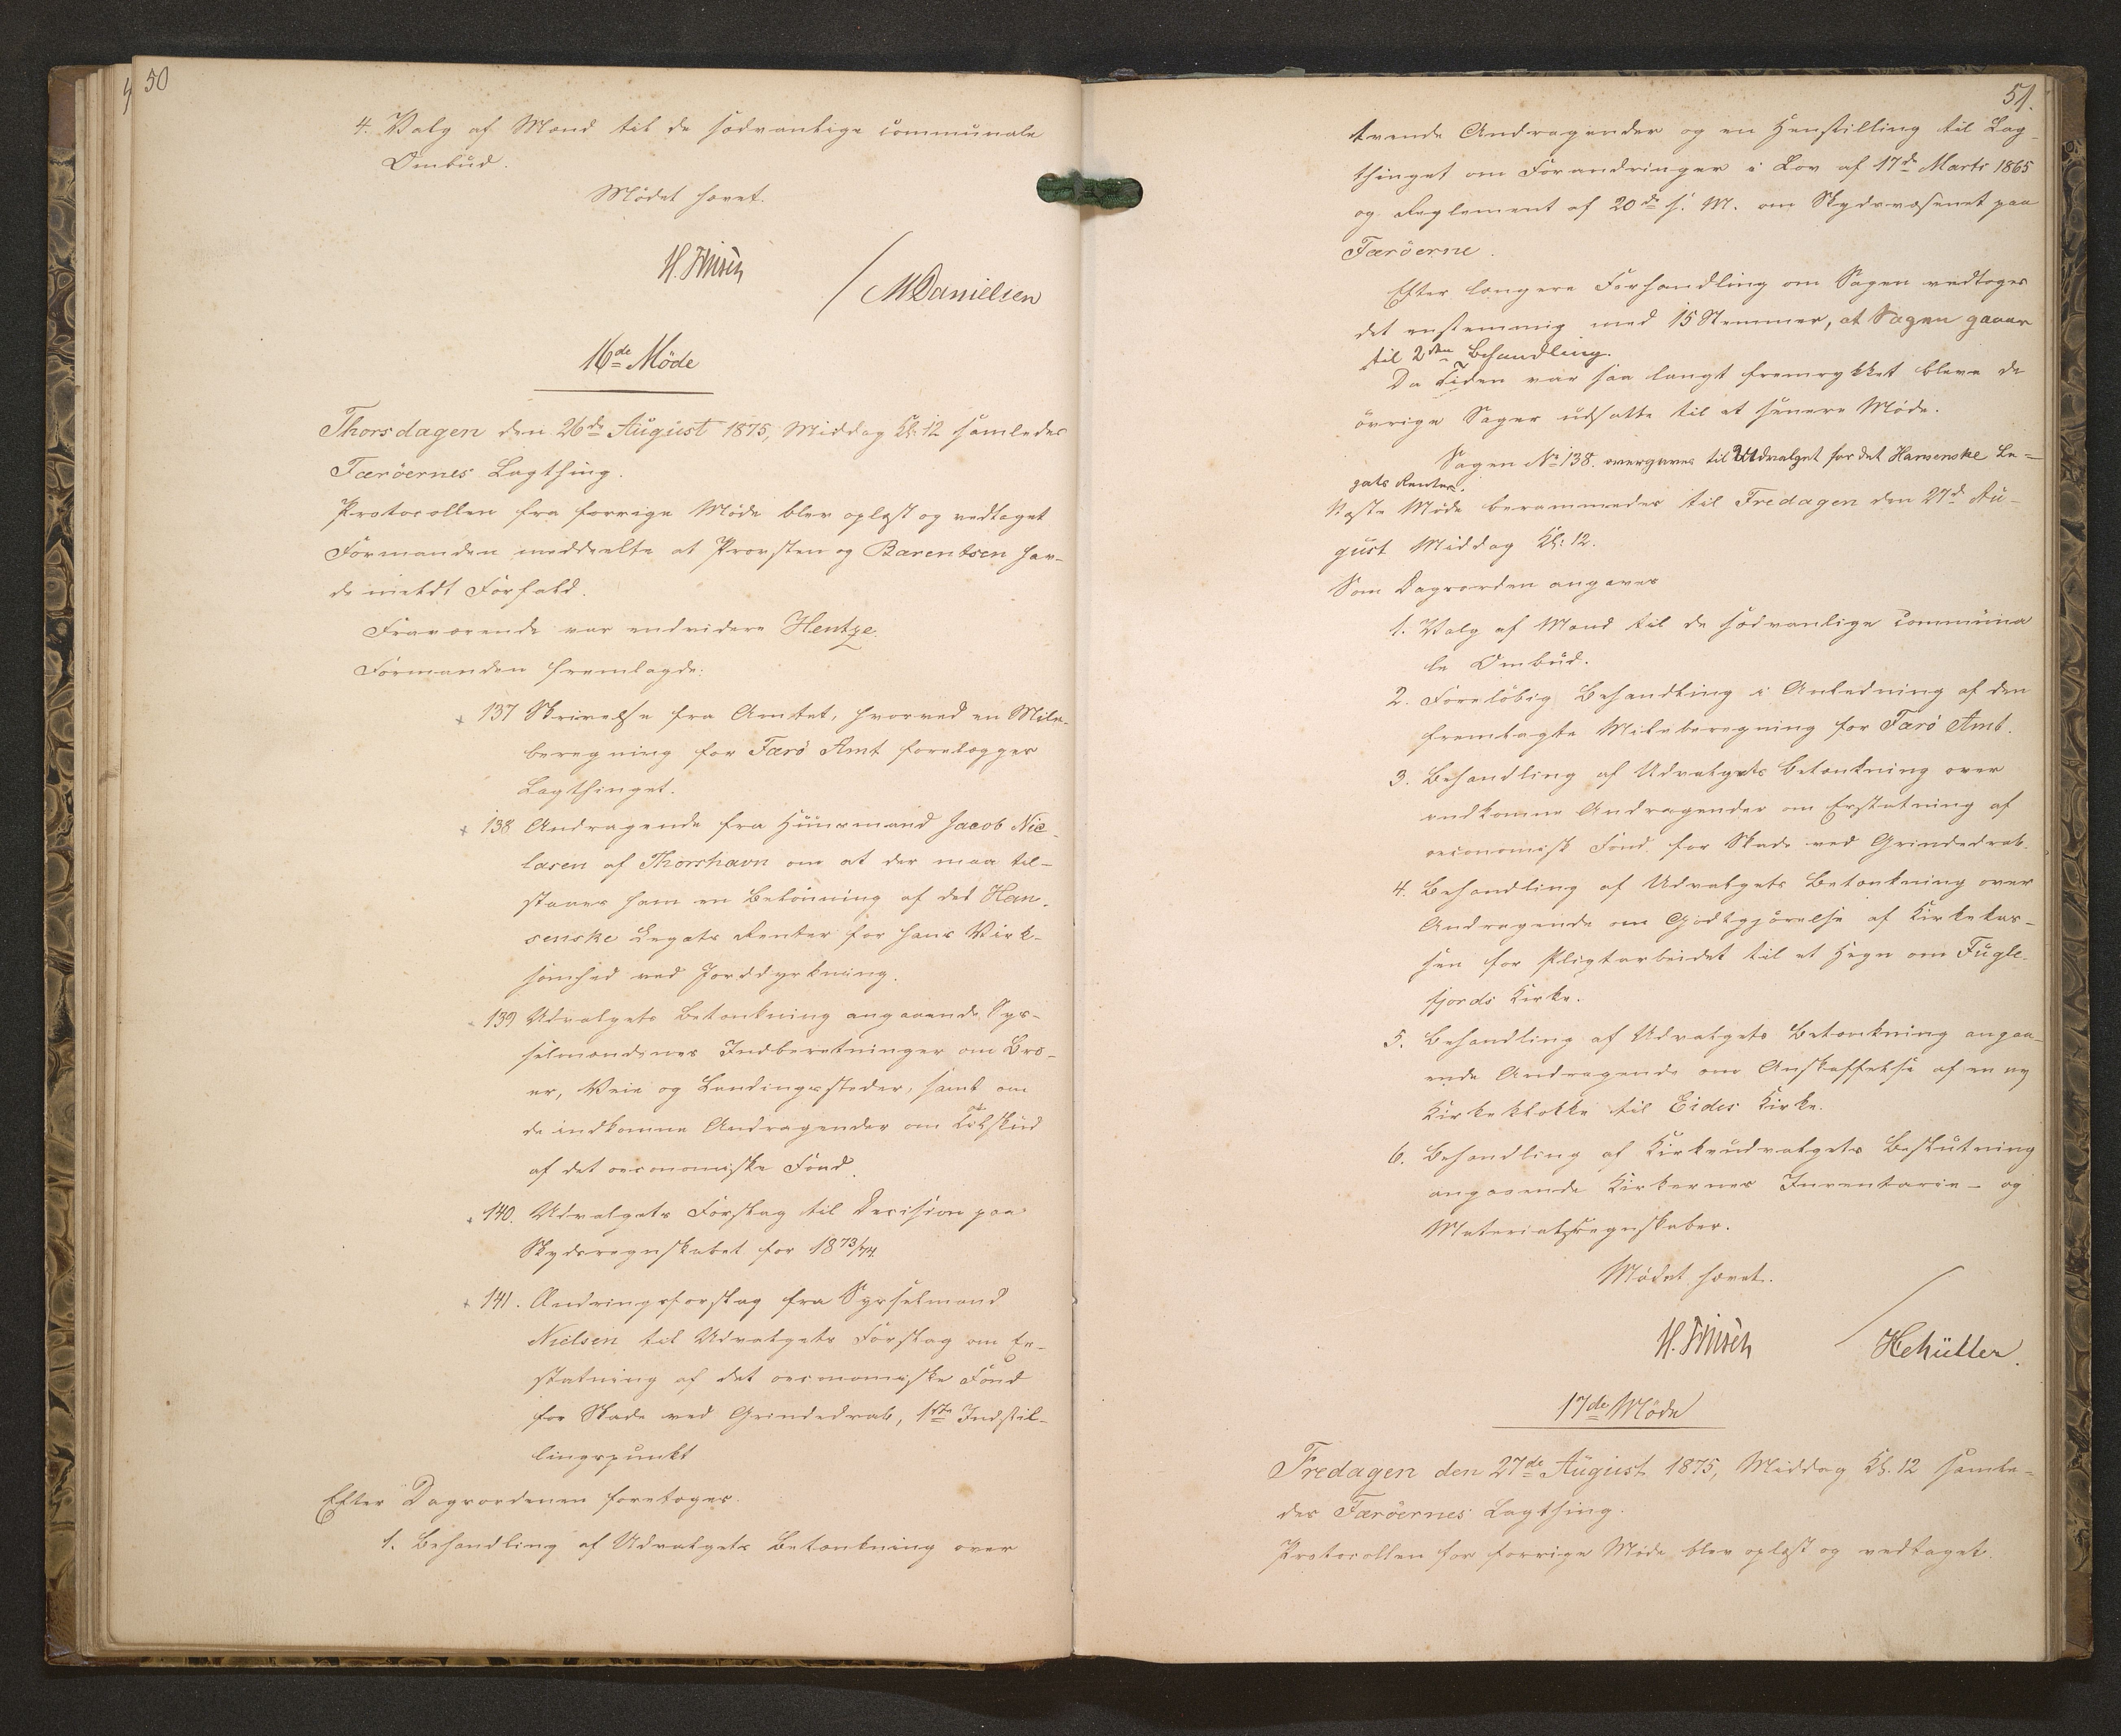 50
4. Valg af Mænd til de sædvanlige communale
Ombud.
Mødet hævet.
H. Finsen
/ MDanielsen
16de Möde
Thorsdagen den 26de August 1875, Middag Kl. 12 samledes
Færöernes Lagthing.
Protocollen fra forrige Møde blev oplæst og vedtaget
Formanden meddeelte at Provsten og Barentsen hav-
de meldt Forfald.
Fraværende var endvidere Hentze.
Formanden fremlagde:
+ 137 Skrivelse fra Amtet, hvorved en Mile-
beregning for Færö Amt forelægges
Lagthinget.
+ 138 Andragende fra Huusmand Jacob Nic-
lasen af Thorshavn om at der maa til-
staaes ham en Belönning af det Han-
senske Legats Renter for hans Virk-
somhed ved Jorddyrkning.
139 Udvalgets Betænkning angaaende Sys-
selmændenes Indberetninger om Bro-
er, Veie og Landingssteder, samt om
de indkomne Andragender om Tilskud
af det oeconomiske Fond.
+ 140. Udvalgets Forslag til Decision paa
Skydsregnskabet for 1873/74
+ 141. Ændringsforslag fra Sysselmand
Nielsen til Udvalgets Forslag om Er-
statning af det oeconomiske Fond
for Skade ved Grindedrab, 1ste Indstil-
lingspunkt
Efter Dagsordenen foretoges.
1. Behandling af Udvalgets Betænkning over
51.
tvende Andragender og en Henstilling til Lag-
thinget om Forandringer i Lov af 17de Marts 1865
og Reglement af 20de s. M. om Skydsvæsenet paa
Færöerne.
Efter længere Forhandling om Sagen vedtoges
det enstemmig med 15 Stemmer, at Sagen gaaer
til 2den Behandling.
Da Tiden var saa langt fremrykket bleve de
övrige Sager udsatte til et senere Möde.
Sagen No 138. overgaves til Udvalget for det Hansenske Le-
gats Renter.
Næste Möde berammedes til Fredagen den 27de Au-
gust Middag Kl: 12.
Som Dagsorden angaves
1. Valg af Mænd til de sædvanlige communa
le Ombud.
2. Foreløbig Behandling i Anledning af den
fremlagte Mileberegning for Færö Amt.
3. Behandling af Udvalgets Betænkning over
indkomne Andragender om Erstatning af
oeconomisk Fond for Skade ved Grindedrab.
4. Behandling af Udvalgets Betænkning over
Andragende om Godtgjörelse af Kirkekas-
sen for Pligtarbeidet til et Hegn om Fugle-
fjords Kirke.
5. Behandling af Udvalgets Betænkning angaa-
ende Andragende om Anskaffelse af en ny
Kirkeklokke til Eides Kirke.
6. Behandling af Kirkeudvalgets Beslutning
angaaende Kirkernes Inventarie- og
Materialregnskaber.
Mødet hævet.
H. Finsen
17de Møde
Fredagen den 27de August 1875, Middag Kl. 12 samle-
des Færöernes Lagthing.
Protocollen for forrige Møde blev oplæst og vedtaget.